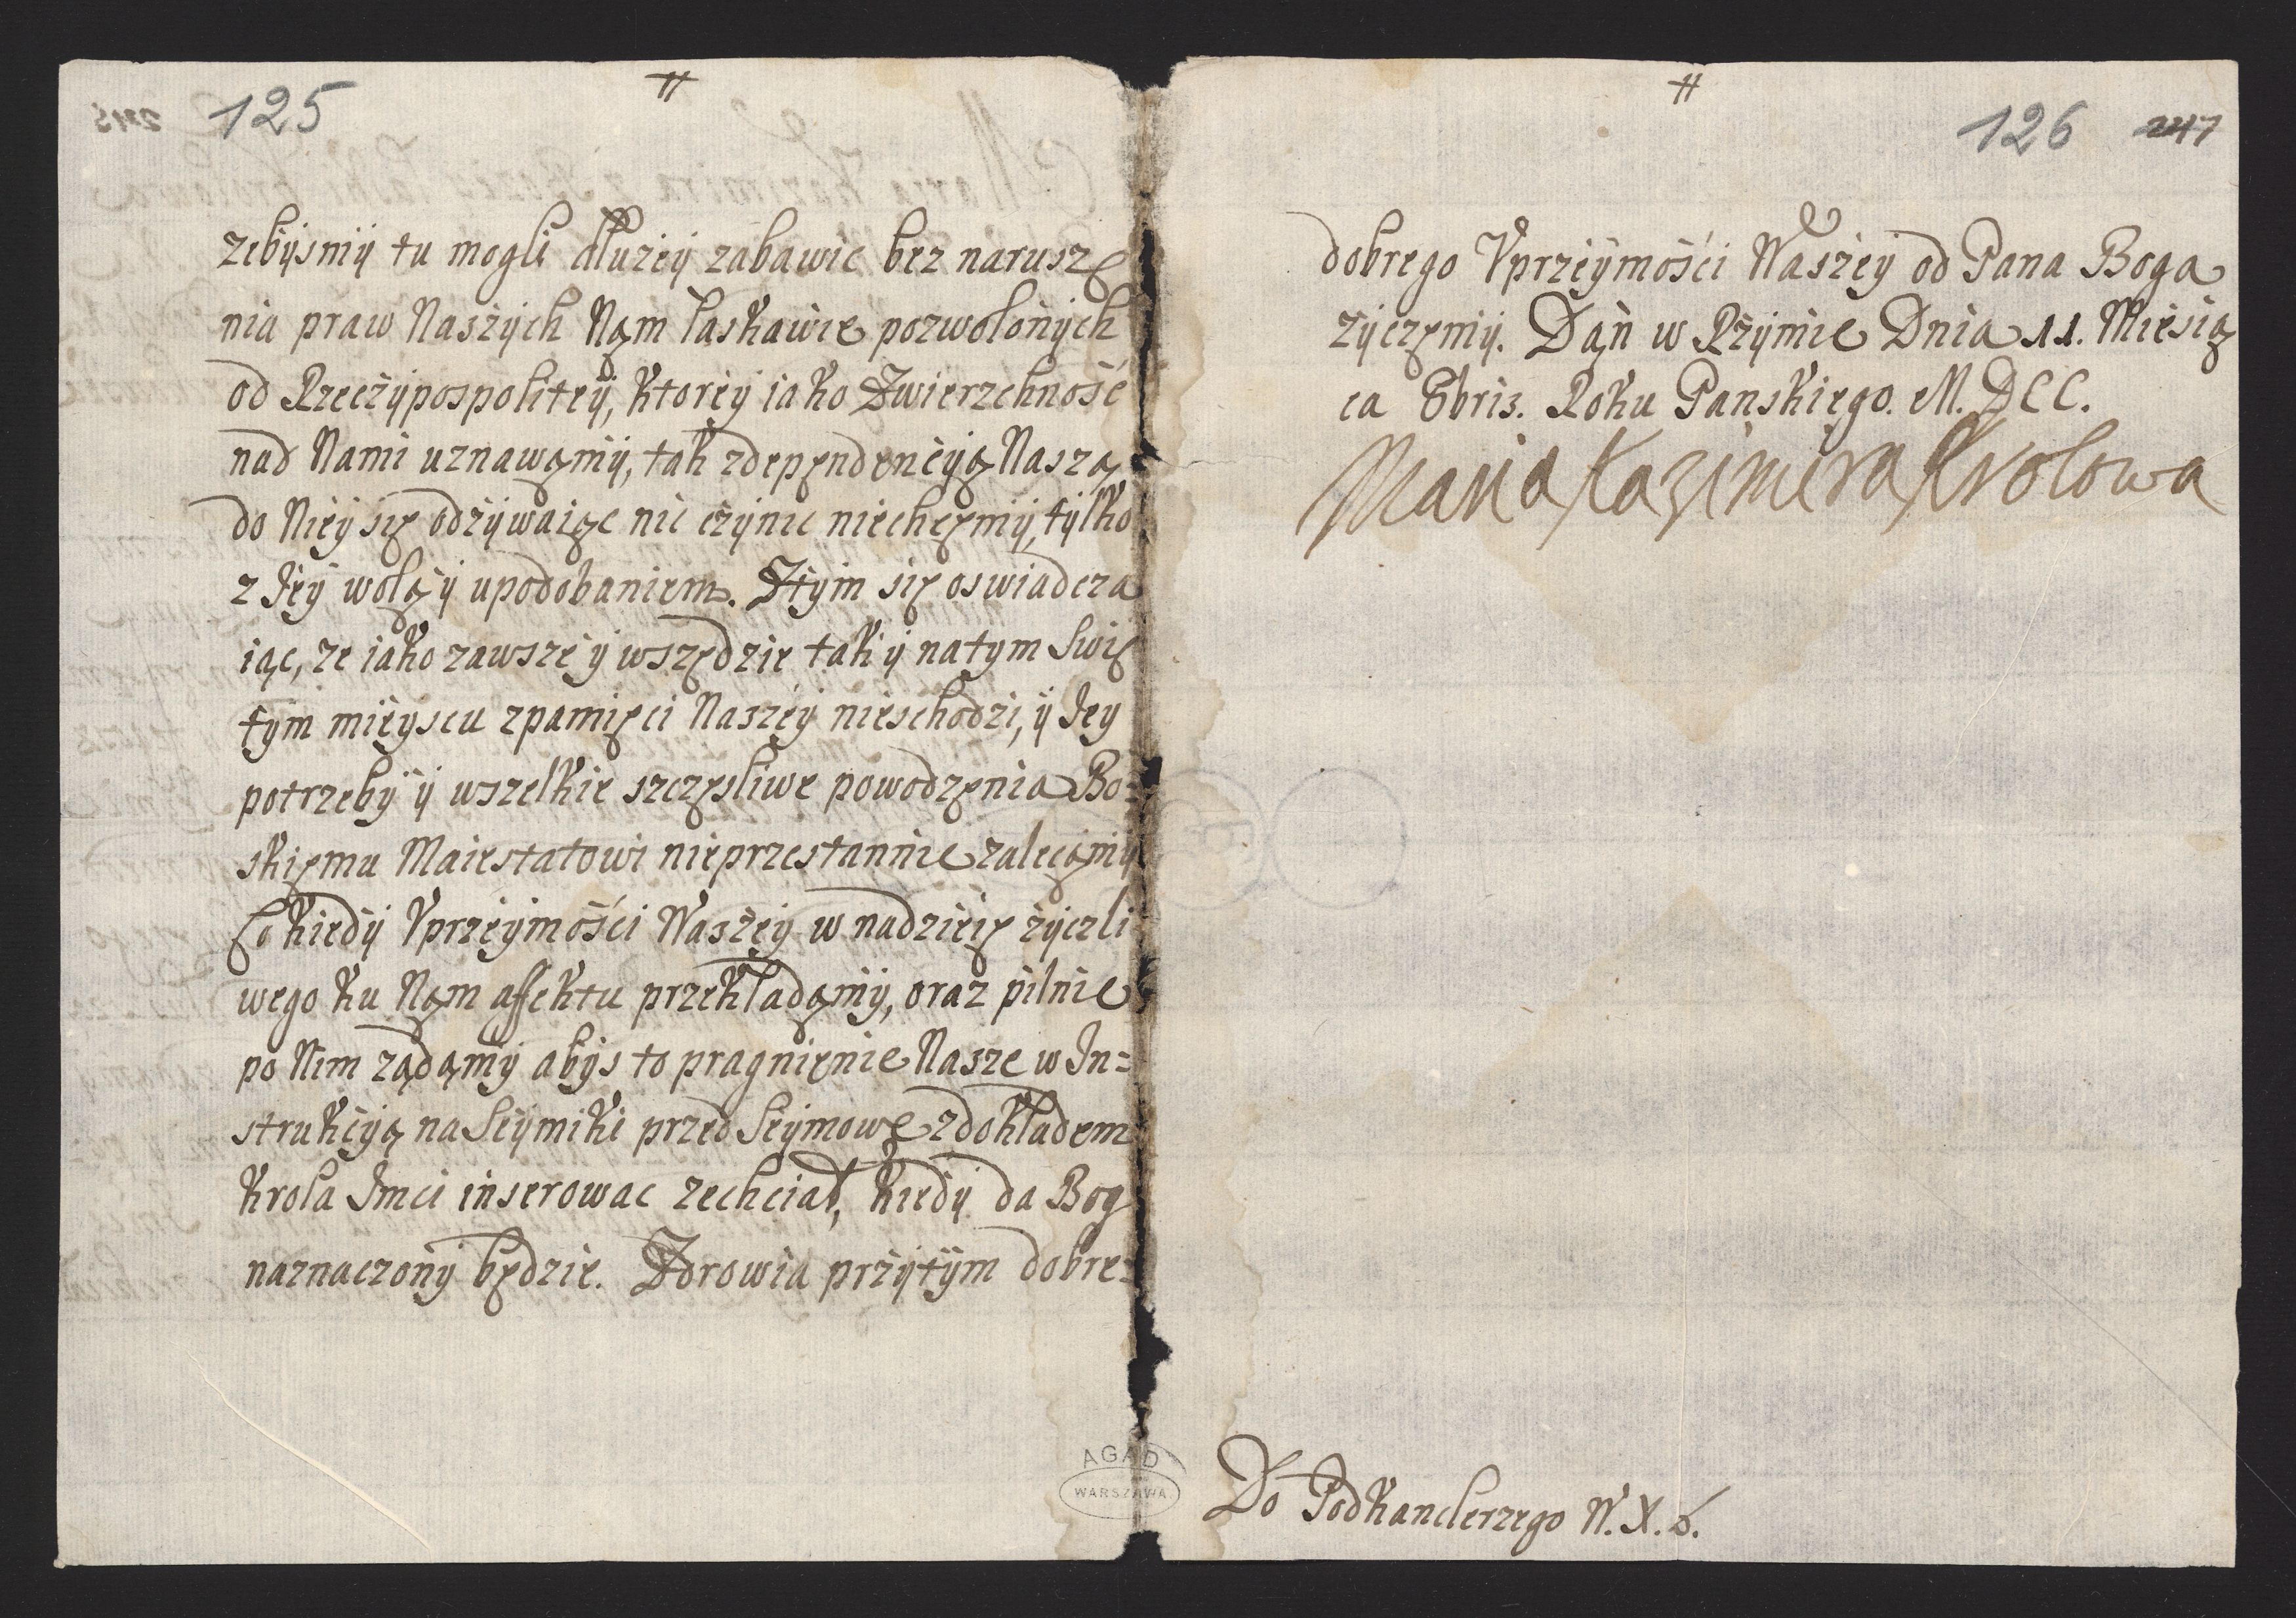 125
zebysmy tu mogli dłuzey zabawic bez naruszę
nia praw Naszych Nąm łaskawie pozwolonych
od Rzeczypospolitey, ktorey iako Zwierzchność
nad Nami uznawąmy, tak zdepęndencyą Naszą
do Niey się odzywaiąc nic czynic niechcęmy, tylko
z Jey wolą y upodobaniem. Ztym się oswiadcza
iąc, ze iako zawsze y wszędzie tak y na tym Swię
tym mieyscu zpamięci Naszey nieschodzi, y Jey
potrzeby y wszelkie szczęsliwe powodzęnia Bo=
skięmu Maiestatowi nieprzestannie zalecąmy
Co kiedy Vprzeymości Waszey w nadzieię zyczli
wego ku Nąm affektu przekładąmy, oraz pilnie
po Nim ządąmy abys to pragnięnie Nasze w In=
strukcyą na Seymiki przed Seymowę zdokładem
Krola Jmci inserowac zechciał, kiedy da Bog
naznaczony będzie. Zdrowia przytym dobre=
126 247
dobrego Vprzeymości Waszey od Pana Boga
zyczęmy. Dąn w Rzymie Dnia 11. Miesią
ca 8bris. Roku Panskiego. M. DCC.
Maria Kazimira Krolowa
Do Podkanclerzego W. X. L.
AGAD
WARSZAWA